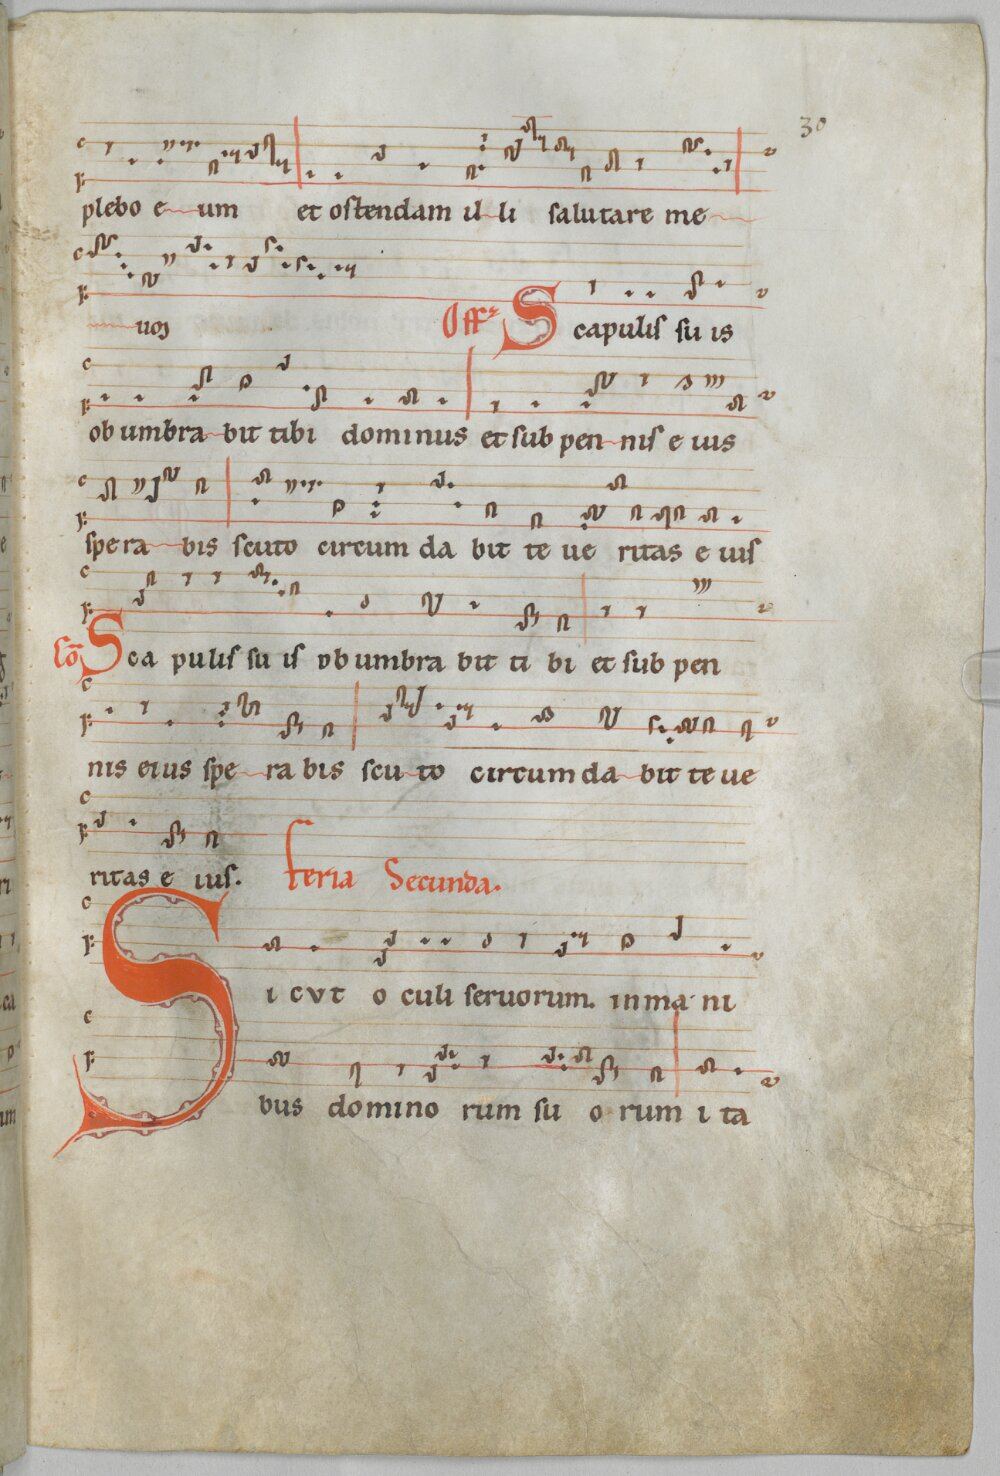 30
plebo e um et ostendam il li salutare me
um
Off Scapulis su is
ob umbra bit tibi dominus et sub pen nis e ius
spera bis scuto circum da bit te ue ritas e ius
Co Sca pulis su is ob umbra bit ti bi et sub pen
nis eius spe ra bis scu to circum da bit te ue
ritas e ius.
feria Secunda.
SI CVT o culi seruorum. in ma ni
bus domino rum su o rum i ta